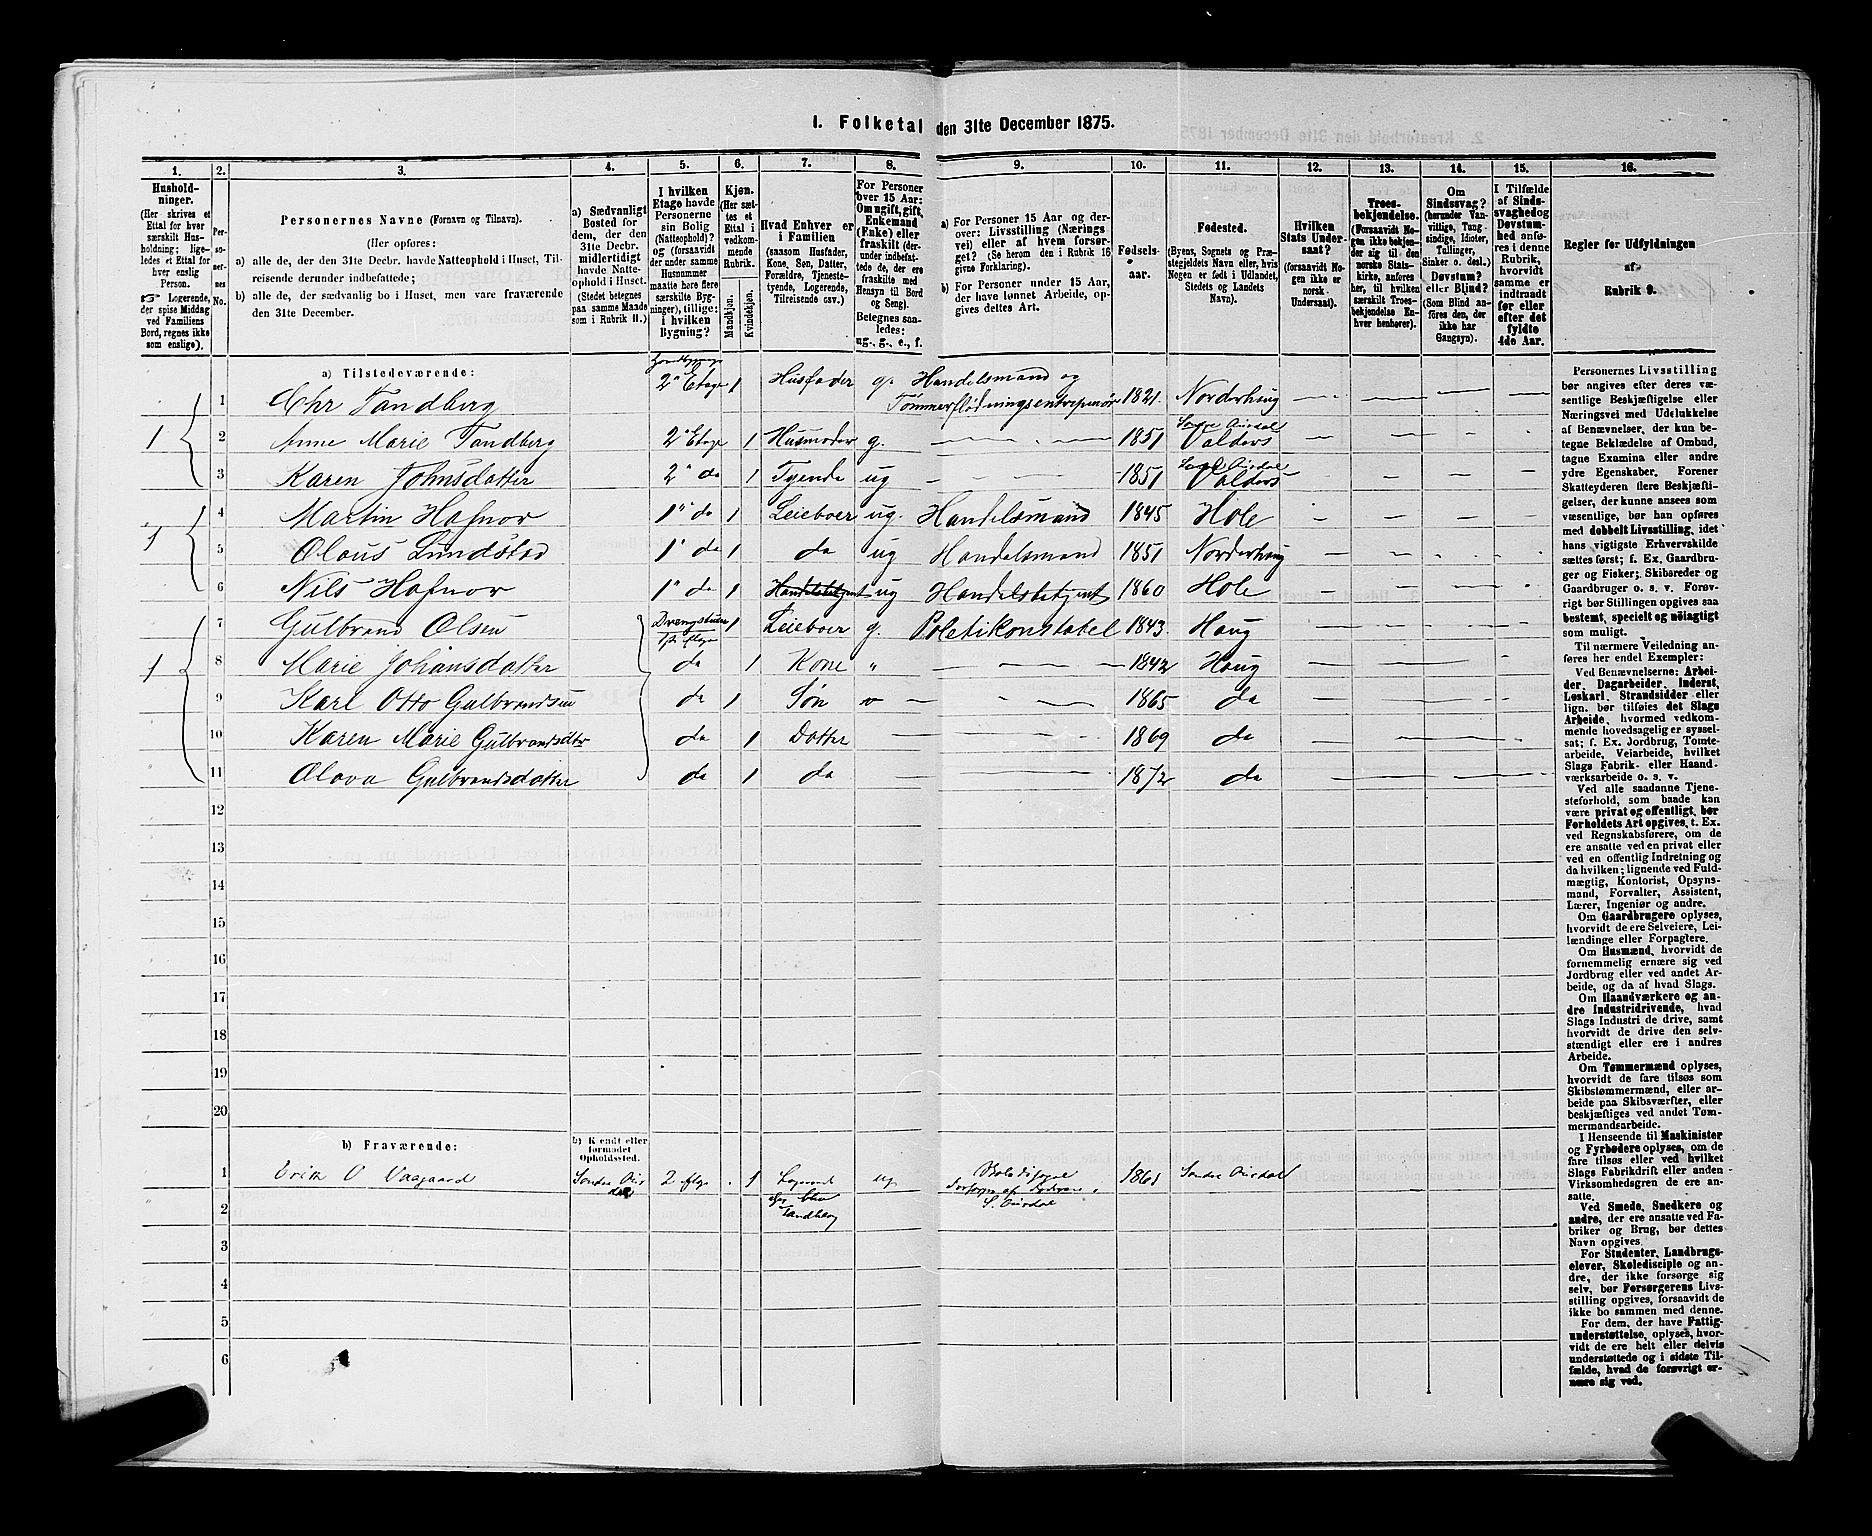 1. Folketal den 31te December 1875.
1. 2. 3. 4. 5. 6. 7. 8. 9. 10. 11. 12. 13. 14. 15. 16.
Hushold-
ninger.
(Her skrives et
Ettal for hver
særskilt Hus-
holdning; lige-
ledes et Ettal for
hver enslig
Person.
☞ Logerende,
der spise Middag
ved Familiens
Bord, regnes ikke
som enslige).
Per-
so-
ner-
nes
No.
Personernes Navne (Fornavn og Tilnavn).
(Her opføres:
a) alle de, der den 31te Decbr. havde Natteophold i Huset, Til-
reisende derunder indbefattede;
b) alle de, der sædvanlig bo i Huset, men vare fraværende
den 31te December.
a) Sædvanligt
Bosted for
dem, der den
31te Decbr.
midlertidigt
havde Natte-
ophold i Huset.
(Stedet betegnes
paa samme Maade
som i Rubrik 11.)
I hvilken
Etage havde
Personerne
sin Bolig
(Natteophold)?
og (forsaavidt
der under samme
Husnummer
maatte høre flere
særskilte Byg-
ninger), tillige:
i hvilken
Bygning?
Kjøn.
(Her sæt-
tes et
Ettal i
vedkom-
mende
Rubrik.
Mandkjøn.
Kvindekjøn.
Hvad Enhver er
i Familien
(saasom Husfader,
Kone, Søn, Datter,
Forældre, Tjeneste-
tyende, Logerende,
Tilreisende osv.)
For Personer
over 15 Aar:
Om ugift, gift,
Enkemand
(Enke) eller
fraskilt (der-
under indbefat-
tede de, der ere
fraskilte med
Hensyn til Bord
og Seng).
Betegnes saa-
ledes:
ug., g., e., f.
a) For Personer 15 Aar og der-
over: Livsstilling (Nærings
vei) eller af hvem forsør-
get? (Se herom den i Rubrik 16
givne Forklaring).
b) For Personer under 15 Aar,
der have lønnet Arbeide, op-
gives dettes Art.
Fødsels-
aar.
Fødested.
(Byens, Sognets og Præ-
stegjeldets Navn eller, hvis
Nogen er født i Udlandet,
Stedets og Landets
Navn).
Hvilken
Stats Under-
saat?
(forsaavidt No-
gen ikke er
norsk
Undersaat).
Troes-
bekjendelse.
(Forsaavidt No-
gen ikke bekjen-
der sig til den
norske Stats-
kirke, anføres
her, til hvilken
særskilt Troes-
bekjendelse En-
hver henhører).
Om
Sindssvag?
(herunder Van-
vittige, Tung-
sindige, Idioter,
Tullinger,
Sinker o. desl.)
Døvstum?
eller Blind?
(Som Blind an-
føres den, der
ikke har
Gangsyn).
I Tilfælde
af Sinds-
svaghed og
Døvstum-
hed anfø-
res i denne
Rubrik,
hvorvidt
samme er
indtraadt
før eller
efter det
fyldte
4de Aar.
Regler for Udfyldningen
af
Rubrik 9.
a) Tilstedeværende:
1 1 Chr Tandberg 2den Etage 1 Husfader g. Handelsmand og Tømmerflødningsentreprenør 1821. Norderhoug
2 Anne Marie Tandberg 2 Etage 1 Husmoder g. 1851 Søndre Aurdal Valders
3 Karen Johnsdatter 2" do 1 Tyende ug 1851 Søndre Aurdal Valders
1 4 Martin Hafnor 1" do 1 Leieboer ug. Handelsmand 1845 Hole
5 Olaus Lundstad 1" do 1 do ug Handelsmand 1851 Norderhoug
6 Nils Hafnor 1" do 1 Handelsbetjent ug Handelsbetjent 1860 Hole
1 7 Gulbrand Olsen Drengstuen 1 Leieboer g. Politikonstabel 1843. Houg
8 Marie Johansdatter do 1 Kone " 1842 Houg
9 Karl Otto Gulbrandsen do 1 Søn 1865 do
10 Karen Marie Gulbrandsdtr do 1 Datter 1869 do
11 Olava Gulbrandsdatter do 1 do 1872 do
12
13
14
15
16
17
18
19
20
b) Fraværende:
b) Kjendt eller
formodet
Opholdssted.
1 Søndre Aurdal 2 Etge 1 Logerende hos Chr Tandberg ug S. Aurdal 1861 Søndre Aurdal
2
3
4
5
6
Personernes Livsstilling
bør angives efter deres væ-
sentlige Beskjæftigelse eller
Næringsvei med Udelukkelse
af Benævnelser, der kun be-
tegne Beklædelse af Ombud,
tagne Examina eller andre
ydre Egenskaber. Forener
Skatteyderen flere Beskjæfti-
gelser, der kunne ansees som
væsentlige, bør han opføres
med dobbelt Livsstilling, idet
hans vigtigste Erhvervskilde
sættes først; f. Ex. Gaardbru-
ger og Fisker; Skibsreder og
Gaardbruger o. s. v. Forøv-
rigt bør Stillingen opgives saa
bestemt, specielt og nøiagtigt
som muligt.
Til nærmere Veiledning an-
føres her endel Exempler:
Ved Benævnelserne: Arbei-
der, Dagarbeider, Inderst,
Løskarl, Strandsidder eller
lign. bør tilføies det Slags
Arbeide, hvormed vedkom-
mende hovedsagelig er syssel-
sat; f. Ex. Jordbrug, Tomte-
arbeide, Veiarbeide, hvilket
Slags Fabrik- eller Haand-
værksarbeide o. s. v.
Ved alle saadanne Tjene-
steforhold, som baade kan
være privat og offentligt, bør
Forholdets Art opgives, t. Ex.
ved Regnskabsførere, om de
ere ansatte ved en privat eller
ved en offentlig Indretning og
da hvilken; lignende ved Fuld-
mægtig, Kontorist, Opsyns-
mand, Forvalter, Assistent,
Lærer, Ingeniør og andre.
Om Gaardbrugere oplyses,
hvorvidt de ere Selveiere, Lei-
lændinge eller Forpagtere.
Om Husmænd, hvorvidt de
fornemmelig ernære sig ved
Jordbrug eller ved andet Ar-
beide, og da af hvad Slags.
Om Haandværkere og an-
dre Industridrivende, hvad
Slags Industri de drive, samt
hvorvidt de drive den selv-
stændigt eller ere i andres
Arbeide.
Om Tømmermænd oplyses,
hvorvidt de fare tilsøs som
Skibstømmermænd, eller ar-
beide paa Skibsværfter, eller
beskjæftiges ved andet Tøm-
mermandsarbeide.
I Henseende til Maskinister
og Fyrbødere oplyses, om de
fare tilsøs eller ved hvilket
Slags Fabrikdrift eller anden
Virksomhedsgren de ere an-
satte.
Ved Smede, Snedkere og
andre, der ere ansatte ved Fa-
briker og Brug, bør dettes
Navn opgives.
For Studenter, Landbrugs-
elever, Skoledisciple og an-
dre, der ikke forsørge sig
selv, bør Forsørgerens Livs-
stilling opgives, forsaavidt de
ikke bo sammen med denne.
For dem, der have Fattig-
understøttelse, oplyses, hvor-
vidt de ere helt eller delvis
understøttede og i sidste Til-
fælde, hvad de forøvrigt er-
nære sig ved.